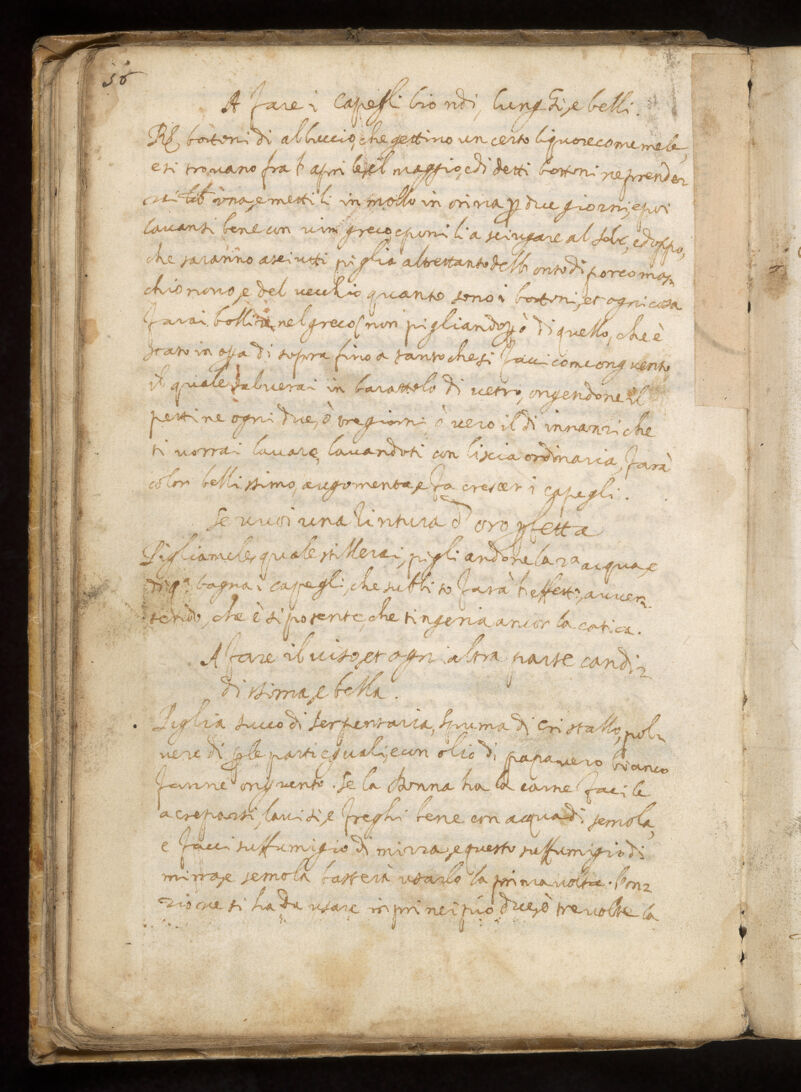 56
A fare i capelli biondi, lunghi, e belli.
Rx bottoni di albuccio, che gettino un certo liquore come mele,
e si trovano fra l'aprile, e'l maggio, e di detti bottoni ne prender
una, e mettili in mollo in orina p due giorni, e poi
lavansi bene con vin greco, e ponili a sciugare al sole, e doppo,
che saranno asciutti piglia altrettanto dell'onto di porco mas-
chio novo, e del vecchio quanto sono i bottoni, et ogni cosa
farai bollire nel greco, non pigliando però di quello, che è
stato in opa di sopra fino a tanto che si facci come onguento
il quale salverai in barattolo di vetro, ongendone il
pettine ogni due, ò tre giorni, ò vero il dì innanzi che
ti vorrai lavare, lavandoti con liscia ordinaria, farà
color bellissimo, augomenta, e fa crescer i capegli.
Se vuoi una tintura d'oro pfetta
Piglia mele, quale stillerai, pigliandone la 2a acqua, e
bagna i capegli, che subbito farà l'effetto, avver-
tendo, che è sì potente, che tingeria ancor la cotica.
A fare il viso, et ogni altra parte candi-
dissima, e bella.
Piglia succo di serpentaria, spuma di cristallo, pol-
vere di parti eguali, e con olio di papavero bianco
fanne onguento. Se la Donna ha la carne facile
a creparsi, lavisi, e freghi bene con acqua di semola,
e facci suffumigio di mirra, e questo suffumigio di
mirra, e semola basterà usarlo la prima volta. L'on-
zione si ha da usare in principio due, ò tre volte la